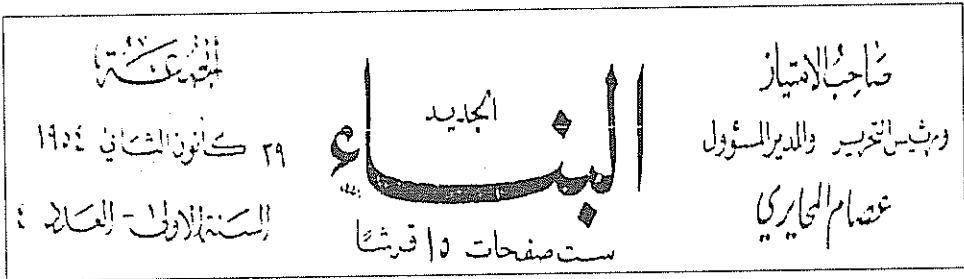 صاحب الامتياز
ورئيس التحرير والمدير المسؤول
عصام المحايري
البناء
الجديد
ست صفحات ١٥ قرشا
الجمعة
٢٩ كانون الثاني ١٩٥٤
السنة الاولى - العدد ٤